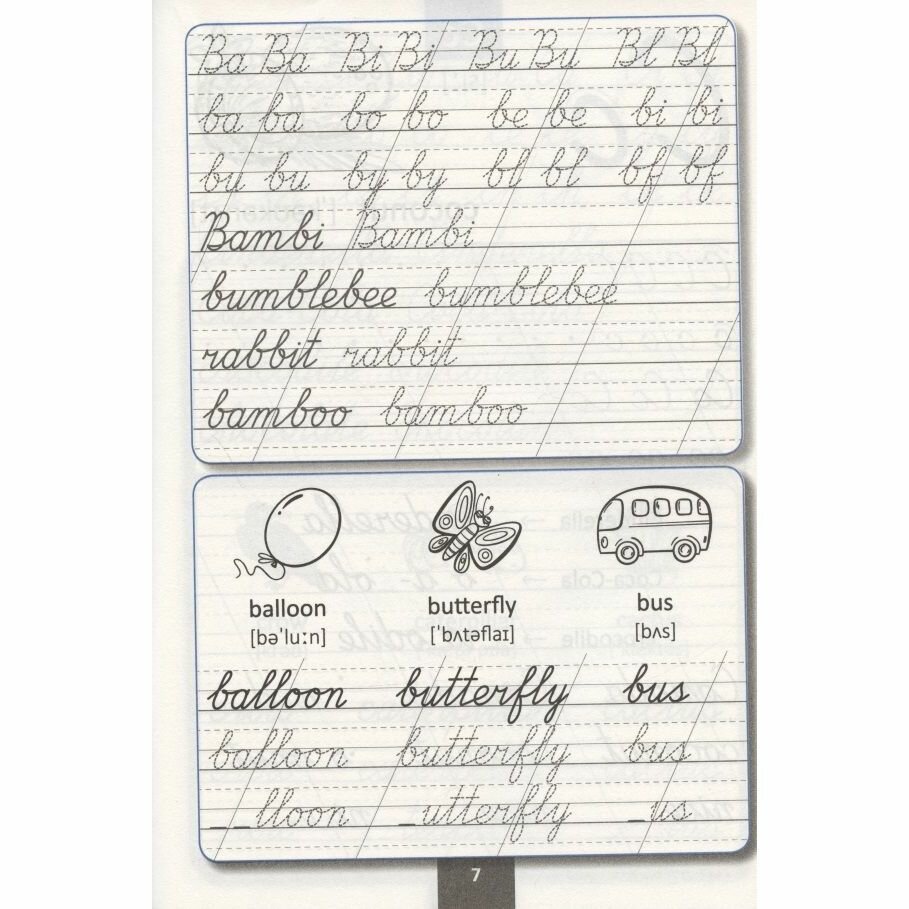 Ba Ba Bi Bi Bu Bu Bl Bl
ba ba bo bo be be bi bi
bu bu by by bl bl bf bf
Bambi Bambi
bumblebee bumblebee
rabbit rabbit
bamboo bamboo
balloon butterfly bus
[bəˈluːn] [ˈbʌtəflaɪ] [bʌs]
balloon butterfly bus
balloon butterfly bus
__lloon _utterfly _us
7